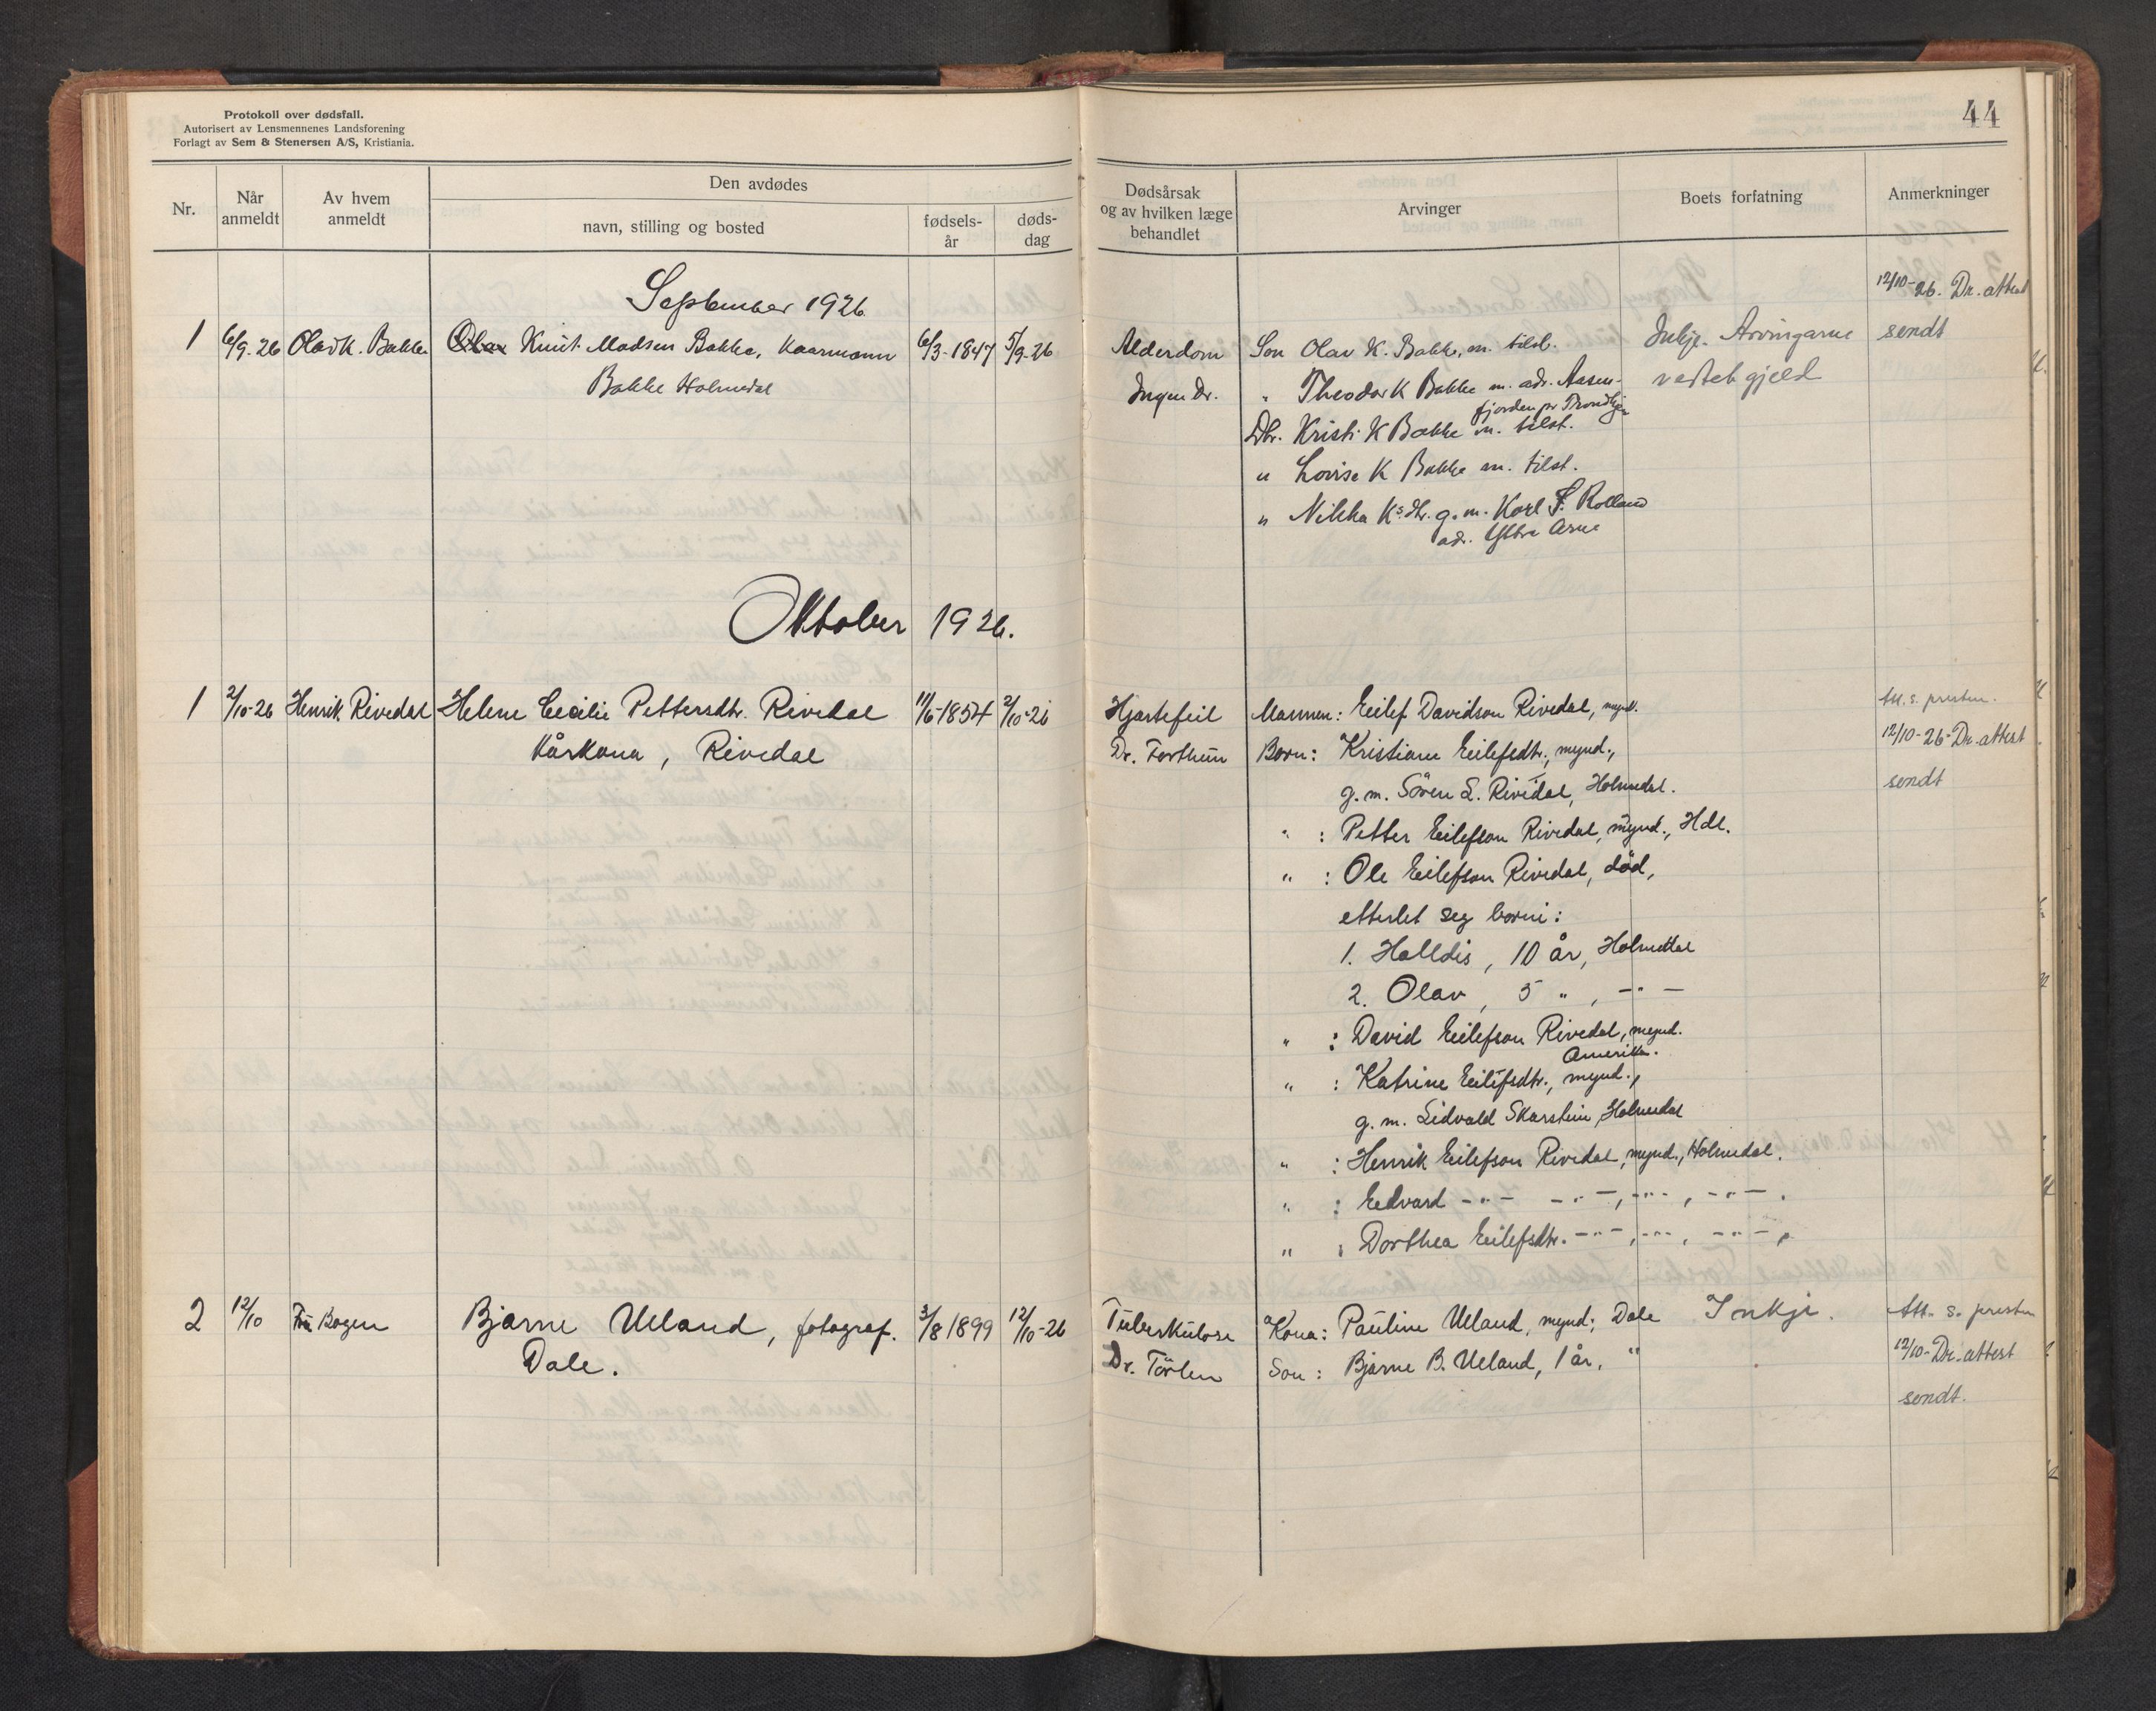 Protokoll over dødsfall.
Autorisert av Lensmennenes Landsforening
Forlagt av Sem & Stenersen A/S, Kristiania.
44
Nr.
Når anmeldt
Av hvem anmeldt
Den avdødes
navn, stilling og bosted
fødsels-år
døds-dag
Dødsårsak og av hvilken læge behandlet
Arvinger
Boets forfatning
Anmerkninger
September 1926.
1 6/9-26 Olav K. Bakke Olav Knut Madsen Bakke, Kaarmann 6/3-1847 5/9-26
Bakke Holmedal
Alderdom
Ingen Dr.
Son Olav K. Bakke, m. tilst.
" Theodor K Bakke m. adr. Aasen-
fjorden pr Trondhjem
Dtr. Kristi K Bakke m. tilst.
" Lovise K Bakke m. tilst.
" Nikka Ks dtr. g.m. Karl F. Rolland
adr. Ytre Arne
Inkje. Arvingarne
vedtek gjeld
12/10-26. Dr. attest
sendt
Oktober 1926.
1 2/10-26 Henrik Rivedal Helene Cecilie Pettersdtr. Rivedal 11/6-1854 2/10-26
Kårkona, Rivedal
Hjartefeil
Dr. Forthun
Mannen: Eilef Davidson Rivedal, mynd.
Born: Kristiane Eilefsdtr., mynd.,
g.m. Sören L. Rivedal, Holmedal.
" : Petter Eilefson Rivedal, mynd., Hdl.
" : Ole Eilefson Rivedal, död,
etterlet seg borni:
1. Halldis, 10 år, Holmedal
2. Olav, 5 ", -"-
" : David Eilefson Rivedal, mynd.
Amerika.
" : Katrine Eilefsdtr., mynd.,
g.m. Sidvald Skarstein, Holmedal
" : Henrik Eilefson Rivedal, mynd., Holmedal.
" : Eedvard -"- -"-, -"-, -"-.
" : Dorthea Eilefsdtr. -"-, -"-, -"-.
Att. s. presten.
12/10-26-Dr. attest
sendt
2 12/10 Fru Bogen Bjarne Ueland, fotograf. 3/8 1899 12/10-26
Dale.
Tuberkulose
Dr. Törlen
Kona: Pauline Ueland, mynd., Dale
Son: Bjarne B. Ueland, 1 år, "
Inkje.
Att. s. presten
12/10-Dr. attest
sendt.